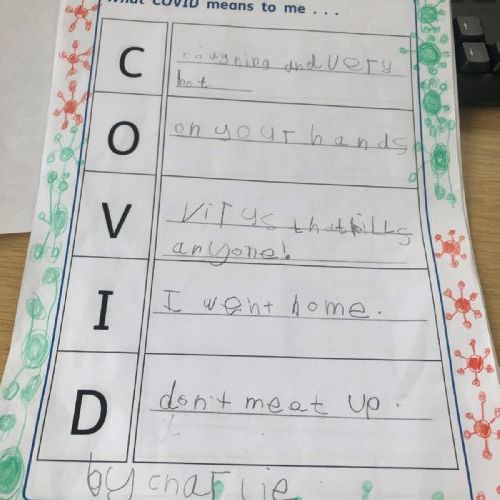 What COVID means to me . . .
C
coughing and very
hot
O
on your hands
V
Virus that kills
anyone!
I
I went home.
D
don't meat up.
d
by charlie